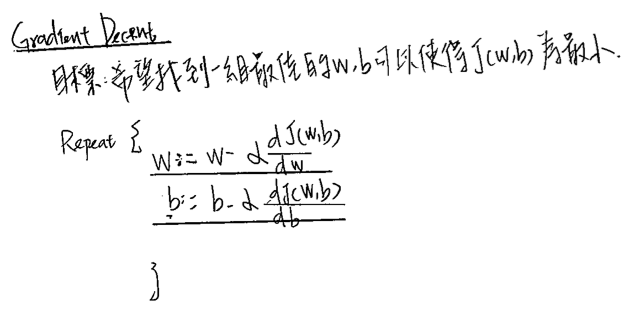 Gradient Decent
目標:希望找到一組最佳的w,b可以使得J(w,b)為最小.
Repeat {
w := w - α dJ(w,b)/dw
b := b - α dJ(w,b)/db
}